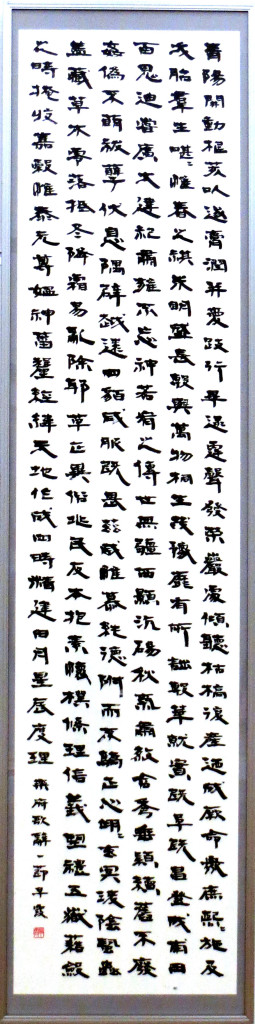 青陽開動根荄以遂膏潤并愛跂行畢逮霆聲發榮巖處傾聽枯槁復產迺成厥命衆庶熙〻施及
夭胎群生啿〻惟春之祺朱明盛長敷與萬物桐生茂豫靡有所詘敷華就實既阜既昌登成甫田
百鬼迪嘗廣大建祀肅雝不忘神若宥之傳世無疆西顥沆碭秋氣肅殺含秀垂穎續舊不廢
姦偽不萌祅孽伏息隅辟越遠四貉咸服既畏茲威惟慕純德附而不驕正心翊〻玄冥陵陰蟄蟲
蓋藏草木零落抵冬降霜易亂除邪革正異俗兆民反本抱素懷樸條理信義望禮五嶽藉斂
之時掩收嘉穀惟泰元尊媼神蕃釐經緯天地作成四時精建日月星辰度理 樂府歌辭一節